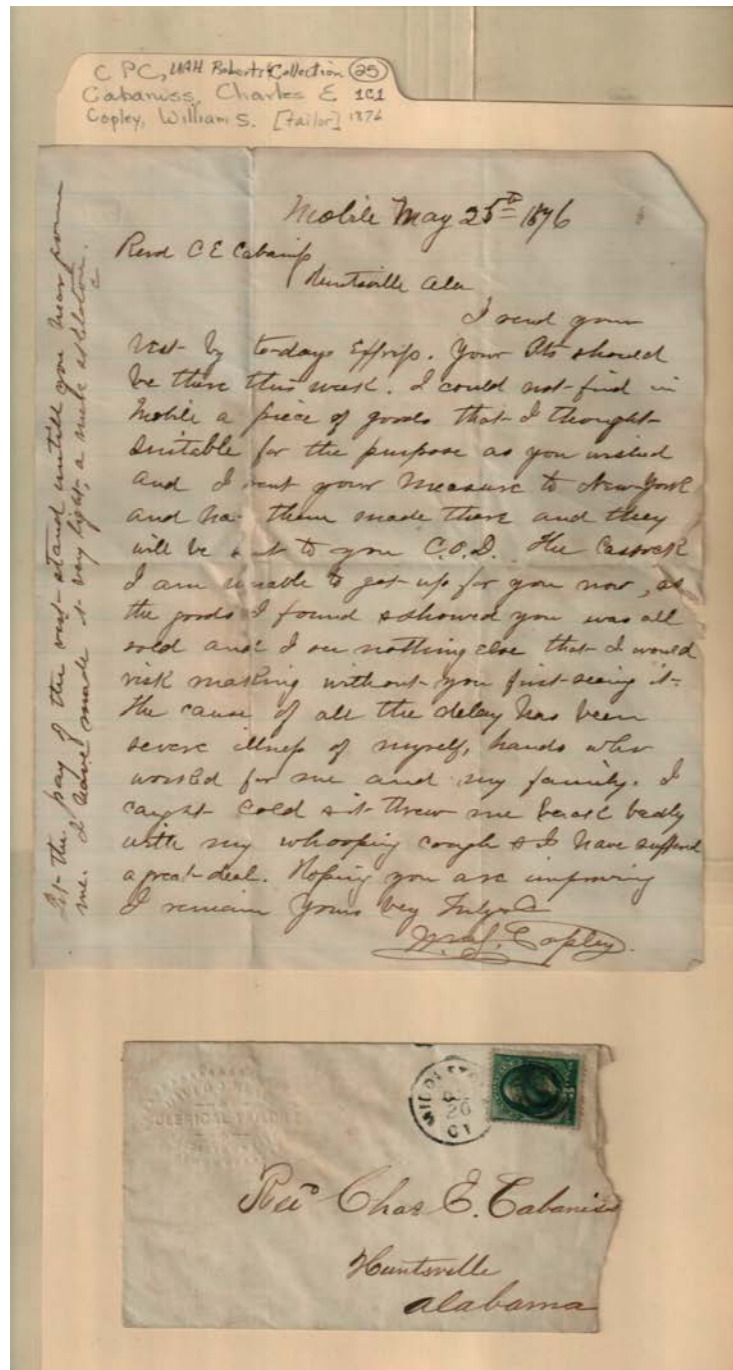 C P C, UAH Roberts Collection (25)
Cabaniss, Charles E 1C1
Copley, William S. [tailor] 1876
Mobile May 25th 1876
Revd C E Cabaniss
Huntsville Ala
I send your
vest by to-days Express. Your Pts should
be there this week. I could not find in
Mobile a piece of goods that I thought
suitable for the purpose as you wished
and I sent your measure to New-York
and ha them made there and they
will be s nt to you C.O.D. The Cassock
I am unable to get up for you now, as
the goods I found & showed you was all
sold and I see nothing else that I would
risk making without you first seeing it.
The cause of all the delay has been
severe illness of myself, hands who
worked for me and my family. I
caught cold & it threw me back badly
with my whooping cough & I have sufferd
a great deal. Hoping you are improving
I remain Yours very Truly
Wm S. Copley.
Let the pay of the vest stand untill you hear from
me. I have made it very light, a mere skeleton.
CLERICAL TAILOR
MIDDLETOWN
26
Revd Chas E. Cabaniss
Huntsville
Alabama